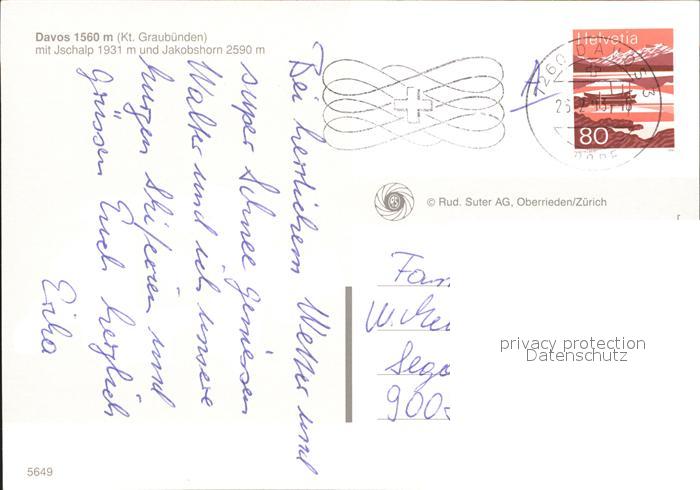 Davos 1560 m (Kt. Graubünden)
mit Jschalp 1931 m und Jakobshorn 2590 m
Bei herrlichem Wetter und
super Schnee geniessen
Walter und ich unsere
kurzen Skiferien und
grüssen Euch herzlich
Erika
Helvetia
80
7260 DAVOS 3
© Rud. Suter AG, Oberrieden/Zürich
Fam
W.
Sega
900
privacy protection
Datenschutz
5649